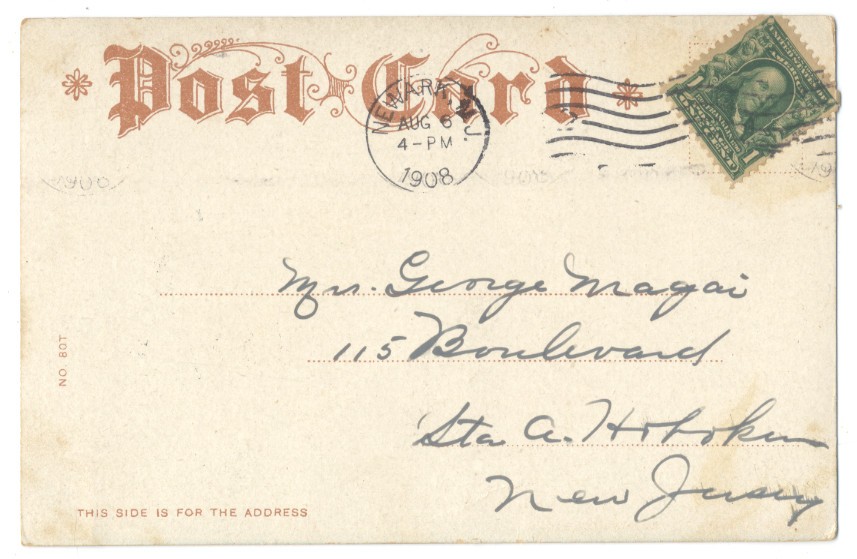 Post Card
NEWARK, N.J.
AUG 6
4-PM
1908
Mrs. George Magai
115 Boulevard
Sta A. Hoboken
New Jersey
NO. 80T
THIS SIDE IS FOR THE ADDRESS